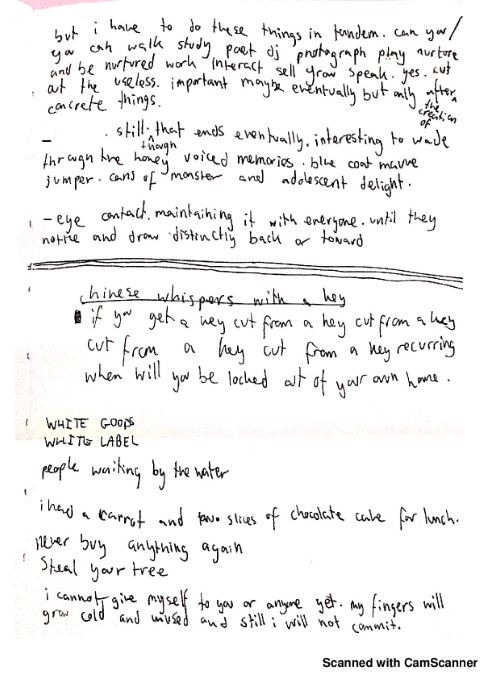 but i have to do these things in tandem. can you/
you can walk study poet dj photograph play nurture
and be nurtured work interact sell grow speak. yes. cut
out the useless. important maybe eventually but only after
the creation of
concrete things.
— . still. that ends eventually. interesting to wade
though
through the honey voiced memories. blue coat mauve
jumper. cans of monster and adolescent delight.
- eye contact. maintaining it with everyone. until they
notice and draw distinctly back or toward
chinese whispers with a key
if you get a key cut from a key cut from a key
cut from a key cut from a key recurring
when will you be locked out of your own home.
WHITE GOODS
WHITE LABEL
people waiting by the water
i had a carrot and two slices of chocolate cake for lunch.
never buy anything again
Steal your tree
i cannot give myself to you or anyone yet. my fingers will
grow cold and unused and still i will not commit.
Scanned with CamScanner